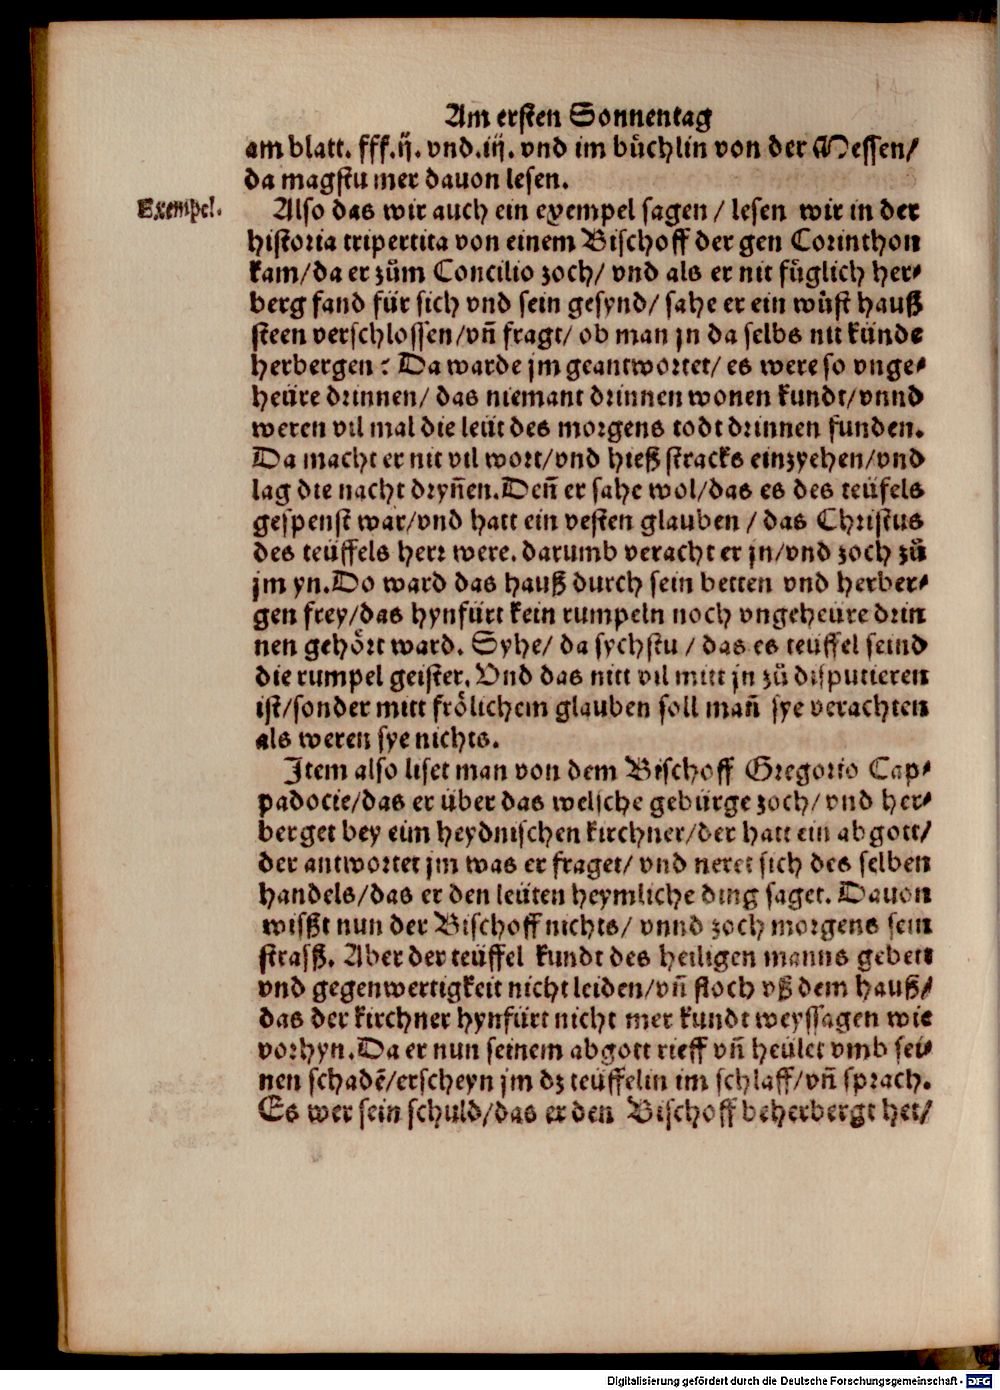 Am ersten Sonnentag
am blatt. fff.ij. vnd.iij. vnd im bůchlin von der Messen/
da magstu mer dauon lesen.
Exempel.
Also das wir auch ein exempel sagen / lesen wir in der
historia tripertita von einem Bischoff der gen Corinthon
kam/da er zům Concilio zoch/ vnd als er nit fůglich her-
berg fand für sich vnd sein gesynd/ sahe er ein wůst hauß
steen verschlossen/vñ fragt/ ob man jn da selbs nit künde
herbergen: Da warde jm geantwortet/ es were so vnge-
heüre drinnen/ das niemant drinnen wonen kundt/vnnd
weren vil mal die leüt des morgens todt drinnen funden.
Da macht er nit vil wort/vnd hieß stracks einzyehen/vnd
lag die nacht dryñen.Deñ er sahe wol/das es des teüfels
gespenst war/vnd hatt ein vesten glauben / das Christus
des teüffels herr were. darumb veracht er jn/vnd zoch zů
jm yn.Do ward das hauß durch sein betten vnd herber-
gen frey/das hynfürt kein rumpeln noch vngeheüre drin
nen gehört ward. Syhe/ da sychstu / das es teüffel seind
die rumpel geister. Vnd das nitt vil mitt jn zů disputieren
ist/sonder mitt frölichem glauben soll mañ sye verachten
als weren sye nichts.
Item also liset man von dem Bischoff Gregorio Cap-
padocie/das er über das welsche gebürge zoch/ vnd her-
berget bey eim heydnischen kirchner/der hatt ein abgott/
der antwortet jm was er fraget/ vnd neret sich des selben
handels/das er den leüten heymliche ding saget. Dauon
wißt nun der Bischoff nichts/ vnnd zoch morgens sein
strasß. Aber der teüffel kundt des heiligen manns gebett
vnd gegenwertigkeit nicht leiden/vñ floch vß dem hauß/
das der kirchner hynfürt nicht mer kundt weyssagen wie
vorhyn.Da er nun seinem abgott rieff vñ heület vmb sei-
nen schadē/erscheyn jm dz teüffelin im schlaff/vñ sprach.
Es wer sein schuld/das er den Bischoff beherbergt het/
Digitalisierung gefördert durch die Deutsche Forschungsgemeinschaft - DFG